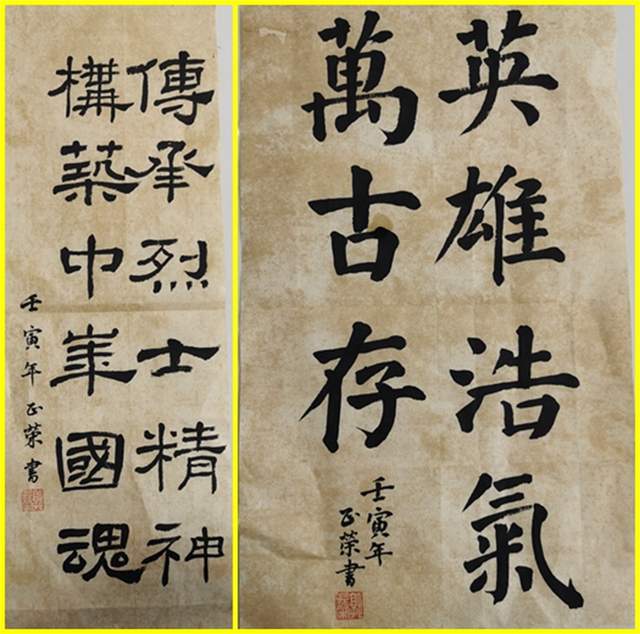 傳承烈士精神
構築中國魂
壬寅年正榮書
英雄浩氣
萬古存
壬寅年
正榮書